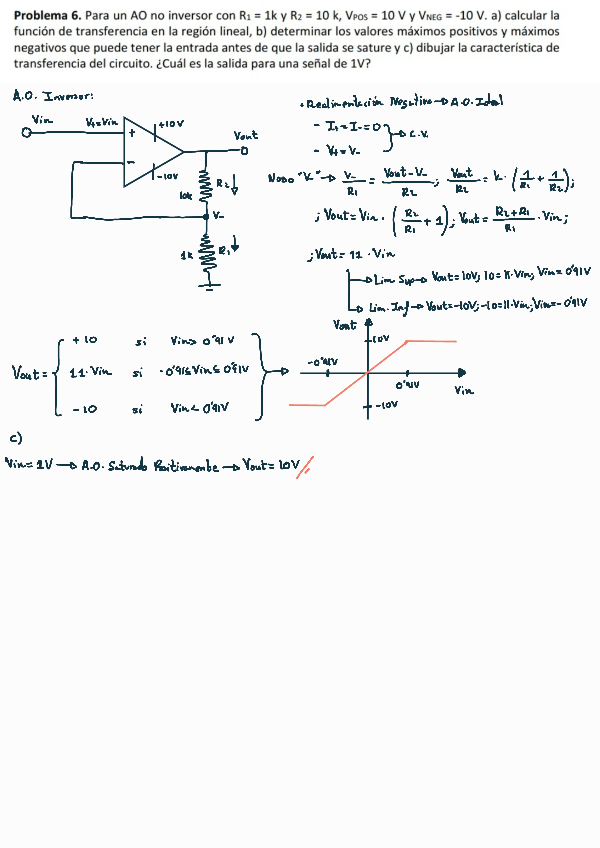 Problema 6. Para un AO no inversor con R₁ = 1k y R₂ = 10 k, VPOS = 10 V y VNEG = -10 V. a) calcular la
función de transferencia en la región lineal, b) determinar los valores máximos positivos y máximos
negativos que puede tener la entrada antes de que la salida se sature y c) dibujar la característica de
transferencia del circuito. ¿Cuál es la salida para una señal de 1V?
A.O. Inversor:
Vin
V+=Vin
+10V
+
-
-10V
Vout
R2
10k
V-
1k
R1
• Realimentación Negativa → A.O. Ideal
- I+=I-=0
- V+=V-
→ C.V.
Nodo "V-" → V-/R1 = Vout-V-/R2; Vout/R2 = V-·(1/R1 + 1/R2);
; Vout=Vin·(R2/R1 + 1); Vout = R2+R1/R1 · Vin;
; Vout= 11 · Vin
→ Lim Sup → Vout=10V; 10=11·Vin; Vin=0'91V
→ Lim. Inf → Vout=-10V; -10=11·Vin; Vin=-0'91V
Vout =
+10 si Vin> 0'91V
11·Vin si -0'91≤Vin≤0'91V
-10 si Vin< 0'91V
Vout
10V
-0'91V
0'91V
Vin
-10V
c)
Vin= 1V → A.O. Saturado Positivamente → Vout= 10V